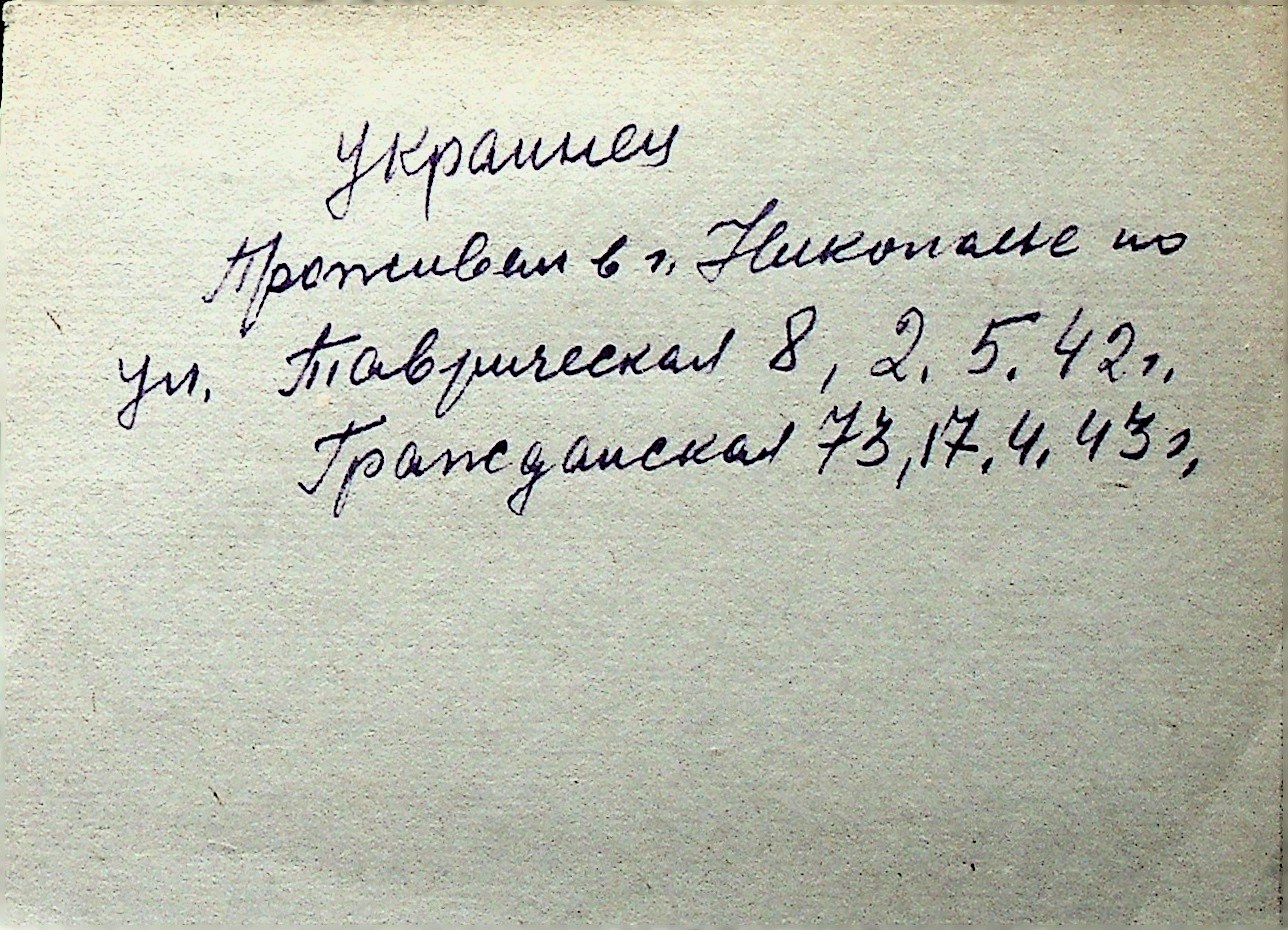 Украинец
Проживал в г. Никополе по
ул. Таврическая 8, 2. 5. 42 г.
Гражданская 73, 17. 4. 43 г.